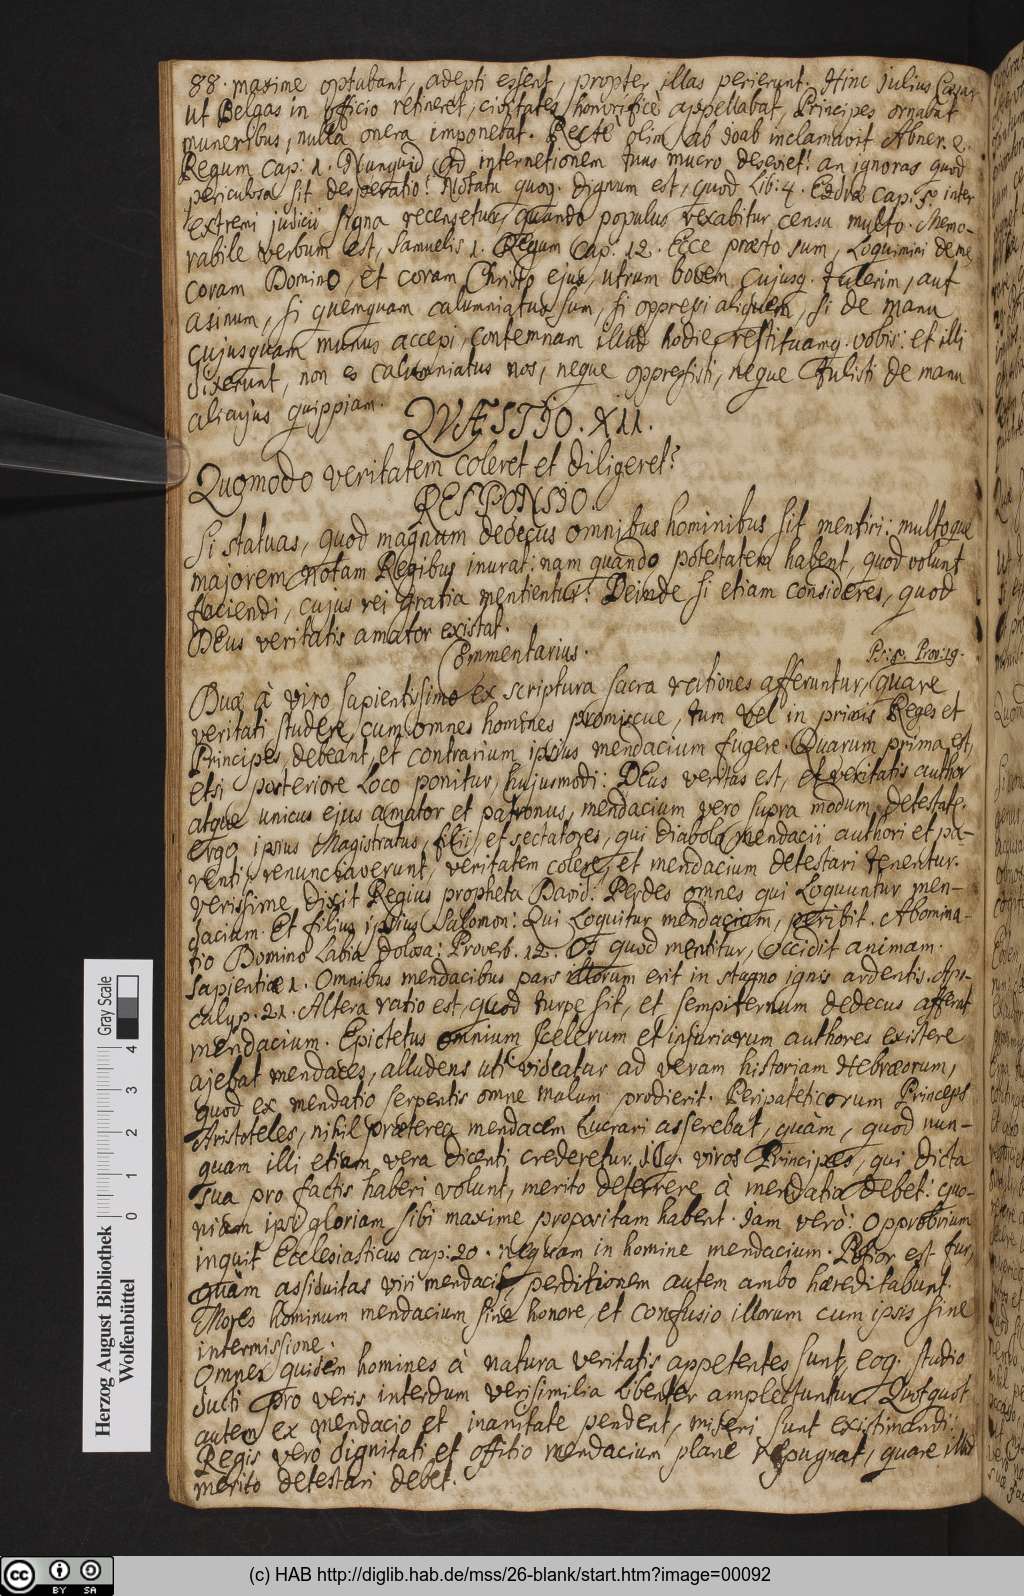 88. maxime optabant, adepti essent, propter illas perierunt. Hinc Julius Caesar
ut Belgas in officio retineret, civitates honorifice appellabat, Principes ornabat
muneribus, nulla onera imponebat. Recte olim ab Joab inclamavit Abner. 2.
Regum cap: 1. Nunquid ad internetionem tuus mucro desaeviet? an ignoras quod
periculosa sit desperatio? Notatu quoq. dignum est, quod Lib: 4. Esdrae cap. 5. inter
extremi judicii signa recensetur, quando populus vexabitur censu multo. Memo-
rabile verbum est, Samuelis 1. Regum Cap: 12. Ecce praesto sum, Loquimini de me
coram Domino, et coram Christo ejus, utrum bovem cujusq. tulerim, aut
asinum, si quemquam calumniatus sum, si oppressi aliquem, si de manu
cujusquam munus accepi, contemnam illud hodie restituamq. vobis: et illi
dixerunt, non es calumniatus nos, neque oppressisti, neque tulisti de manu
alicujus quippiam.
QVÆSTIO. XII.
Quomodo veritatem coleret et diligeret?
RESPONSIO.
Si statuas, quod magnum dedecus omnibus hominibus sit mentiri: multoque
majorem notam Regibus inurat: nam quando potestatem habent, quod volunt
faciendi, cujus rei gratia mentientur? Deinde si etiam consideres, quod
Deus veritatis amator existat.
Commentarius.
Ps: 5. Prov: 19.
Duæ à viro sapientissimo ex scriptura sacra rationes afferuntur, quare
veritati studere, cum omnes homines promiscue, tum vel in primis Reges et
Principes, debeant, et contrarium ipsius mendacium fugere. Quarum prima est,
etsi posteriore Loco ponitur, hujusmodi: Deus veritas est, et veritatis author
atque unicus ejus amator et patronus, mendacium vero supra modum detestatr.
Ergo ipsius Magistratus, filii, et sectatores, qui diabolo mendacii authori et pa-
renti renunciaverunt, veritatem colere, et mendacium detestari tenentur.
Verissime dixit Regius propheta David: Perdes omnes qui Loquuntur men-
dacium. Et filius ipsius Salomon: Qui Loquitur mendacium, peribit. Abomina-
tio Domino Labia dolosa: Proverb. 12. Os quod mentitur, occidit animam.
Sapientiæ 1. Omnibus mendacibus pars illorum erit in stagno ignis ardentis. Apo-
calyp. 21. Altera ratio est, quod turpe sit, et sempiternum dedecus afferat
mendacium. Epictetus omnium scelerum et injuriarum authores existere
ajebat mendaces, alludens uti videatur ad veram historiam Hebraeorum,
quod ex mendatio serpentis omne malum prodierit. Peripateticorum Princeps
Aristoteles, nihil præterea mendacem Lucrari asserebat, quàm, quod nun-
quam illi etiam vera dicenti crederetur. Idq. viros Principes, qui dicta
sua pro factis haberi volunt, merito deterrere à mendatio debet: quo-
niam ipsi gloriam sibi maxime propositam habent. Jam verò: Opprobrium
inquit Ecclesiasticus cap: 20. nequam in homine mendacium. Potior est fur,
quàm assiduitas viri mendacis, perditionem autem ambo hæreditabunt.
Mores hominum mendacium sine honore, et confusio illorum cum ipsis sine
intermissione.
Omnes quidem homines à natura veritatis appetentes sunt, eoq. studio
ducti pro veris interdum verisimilia libenter amplectuntur. Quotquot
autem ex mendacio et inanitate pendent, miseri sunt existimandi:
Regis vero dignitati et offitio mendacium plane repugnat, quare illud
merito detestari debet.
Gray Scale
0 1 2 3 4
Herzog August Bibliothek
Wolfenbüttel
(c) HAB http://diglib.hab.de/mss/26-blank/start.htm?image=00092